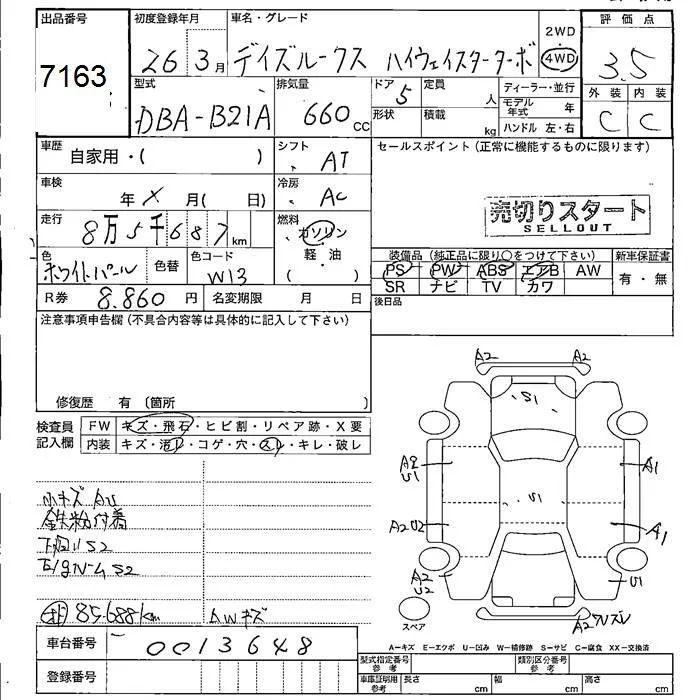 出品番号
7163
初度登録年月
26 3月
車名・グレード
デイズルークス ハイウェイスターターボ
2WD
4WD
評価点
3.5
外装 内装
C C
型式
DBA-B21A
排気量
660 cc
ドア 5
形状
定員 人
積載 kg
ディーラー・並行
モデル年式 年
ハンドル 左・右
車歴
自家用・( )
シフト
AT
車検
年 X 月( 日)
冷房
AC
走行
8万5千687 km
燃料
ガソリン
軽油
( )
色
ホワイトパール
色替
色コード
W13
R券 8.860 円
名変期限 月 日
セールスポイント(正常に機能するものに限ります)
売切りスタート
SELLOUT
装備品(純正品に限り○をつけて下さい)
PS PW ABS エアB AW
SR ナビ TV カワ
新車保証書
有・無
後日品
注意事項申告欄(不具合内容等は具体的に記入して下さい)
修復歴 有 (箇所 )
検査員記入欄
FW キズ・飛石・ヒビ割・リペア跡・X要
内装 キズ・汚レ・コゲ・穴・スレ・キレ・破レ
小キズ AU
鉄粉付着
下廻リS2
85.688km
AWキズ
車台番号
0013648
登録番号
A2 A2
S1
A2
U1
A1
S1
A2 U2
A1
A2
U2
U1
A2 ワレズレ
スペア
A-キズ E-エクボ U-凹み W-補修跡 S-サビ C-腐食 XX-交換済
型式指定番号
参考
類別区分番号
参考
車庫証明用
参考
長さ cm
幅 cm
高さ cm